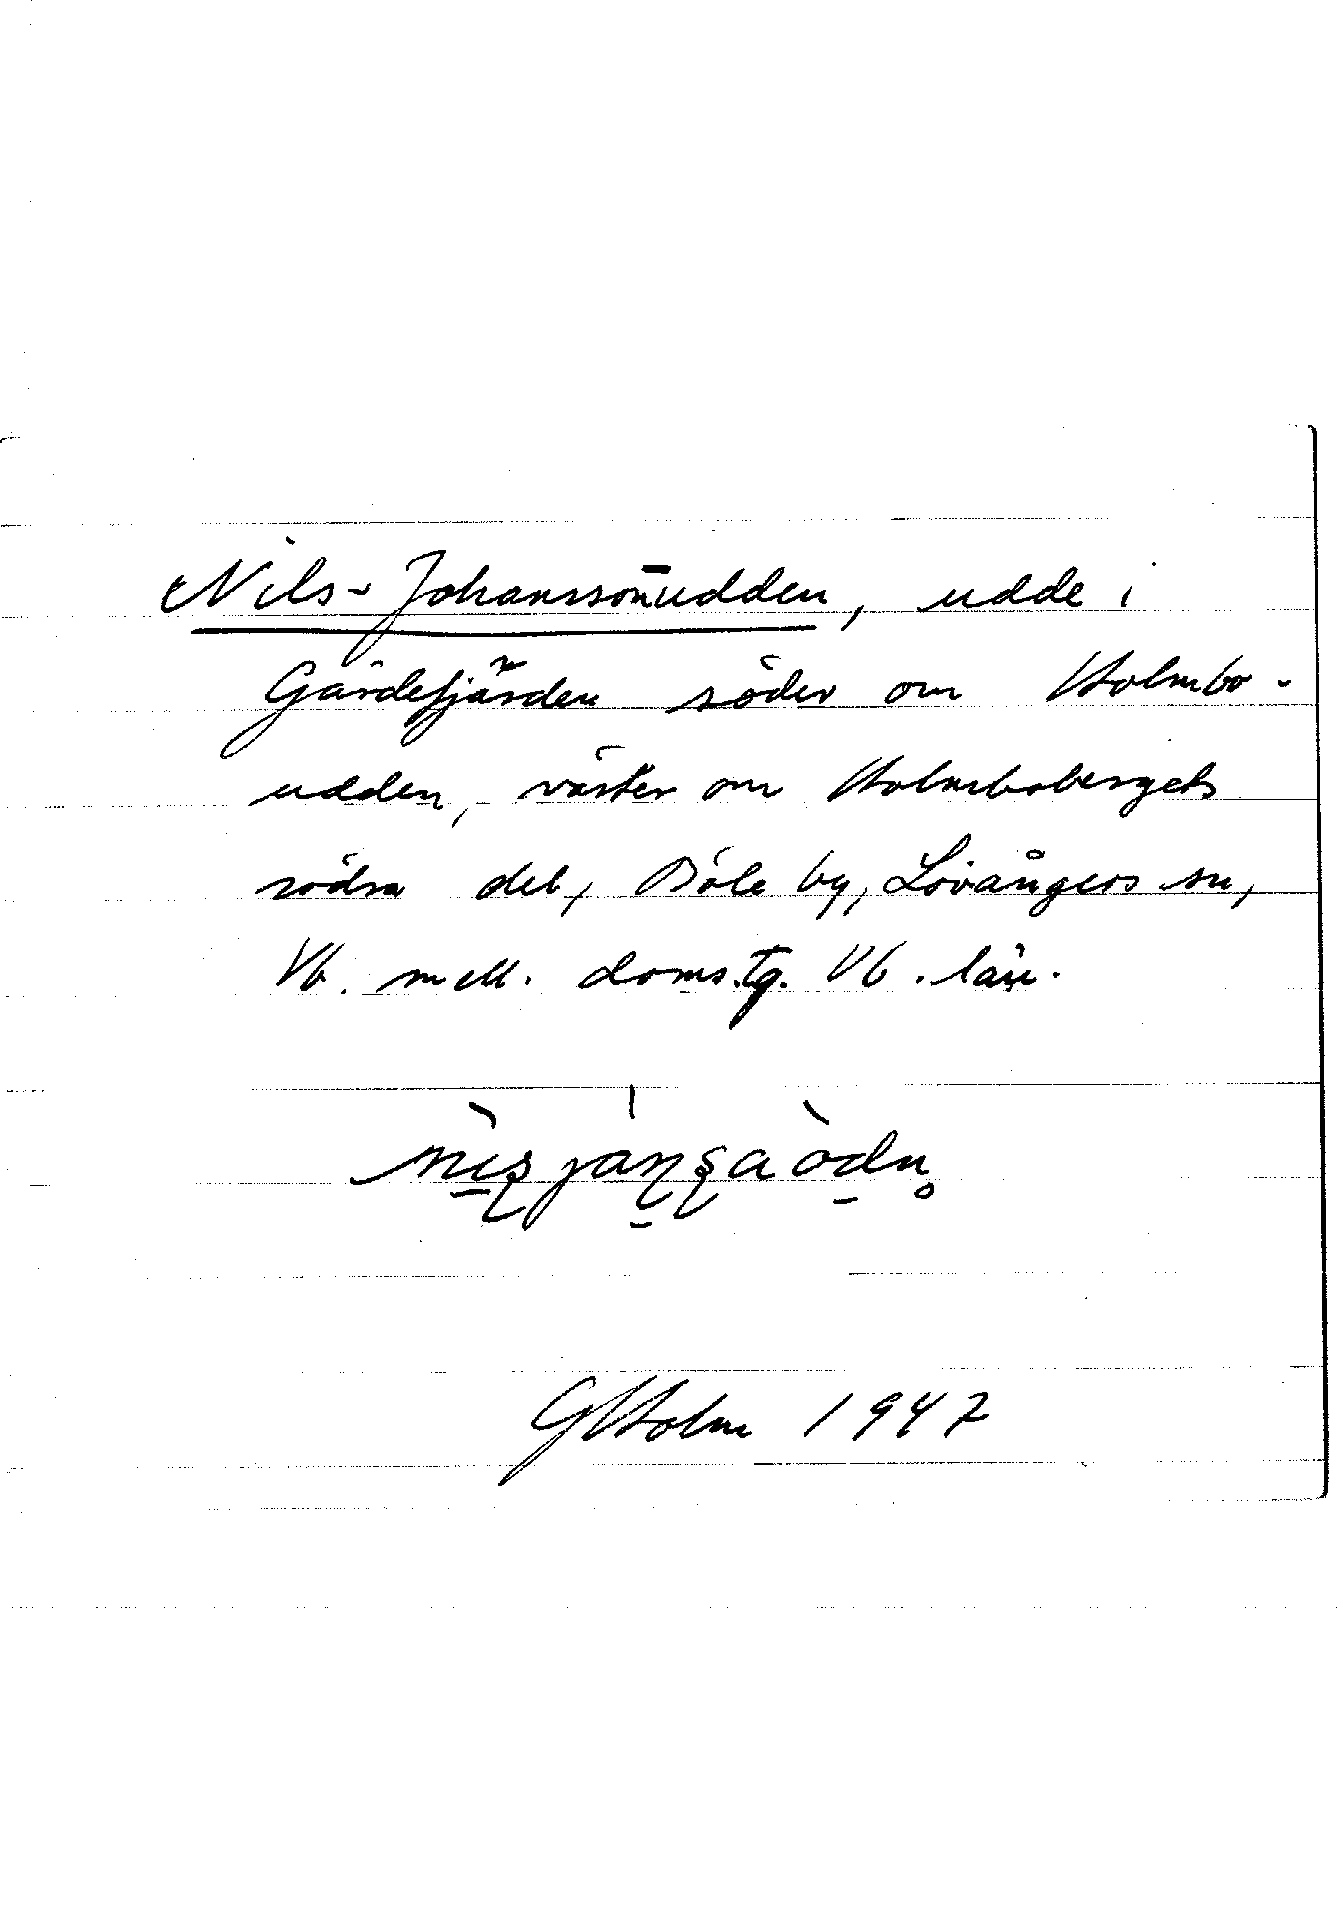 Nils-Johansson-udden, udde i
Gärdefjärden söder om Holmbo-
udden, väster om Holmbobergets
södra del, Böle by, Lövångers sn,
Vb. mell. doms.tg. Vb. län.
GHolm 1947